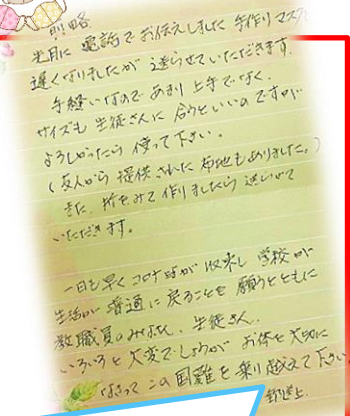 前略
先月に電話でお伝えしました手作りマスク
遅くなりましたが送らせていただきます。
手縫いなのであまり上手でなく、
サイズも生徒さんに合うといいのですが
よろしかったら使って下さい。
(友人から提供された布地もありました。)
また、折をみて作りましたら送らせて
いただきます。
一日も早くコロナ禍が収束し学校が
生活が普通に戻ることを願うとともに
教職員のみなさん、生徒さん、
いろいろと大変でしょうがお体を大切に
なさってこの困難を乗り越えて下さい。